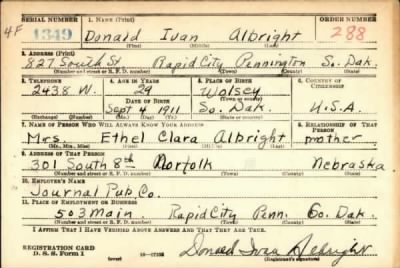 SERIAL NUMBER 1. NAME (Print) ORDER NUMBER
4F 1349 Donald Ivan Albright 288
(First) (Middle) (Last)
2. ADDRESS (Print)
827 South St. Rapid City Pennington So. Dak.
(Number and street or R. F. D. number) (Town) (County) (State)
3. TELEPHONE 4. AGE IN YEARS 5. PLACE OF BIRTH 6. COUNTRY OF CITIZENSHIP
2438 W. 29 Wolsey
DATE OF BIRTH (Town or county)
Sept 4 1911 So. Dak. U.S.A.
(Exchange) (Number) (Mo.) (Day) (Yr.) (State or country)
7. NAME OF PERSON WHO WILL ALWAYS KNOW YOUR ADDRESS 8. RELATIONSHIP OF THAT PERSON
Mrs. Ethel Clara Albright mother
(Mr., Mrs., Miss) (First) (Middle) (Last)
9. ADDRESS OF THAT PERSON
301 South 8th Norfolk Nebraska
(Number and street or R. F. D. number) (Town) (County) (State)
10. EMPLOYER'S NAME
Journal Pub. Co.
11. PLACE OF EMPLOYMENT OR BUSINESS
503 Main Rapid City Penn. So. Dak.
(Number and street or R. F. D. number) (Town) (County) (State)
I AFFIRM THAT I HAVE VERIFIED ABOVE ANSWERS AND THAT THEY ARE TRUE.
REGISTRATION CARD
D. S. S. Form 1 (over) Donald Ivan Albright
(Registrant's signature)